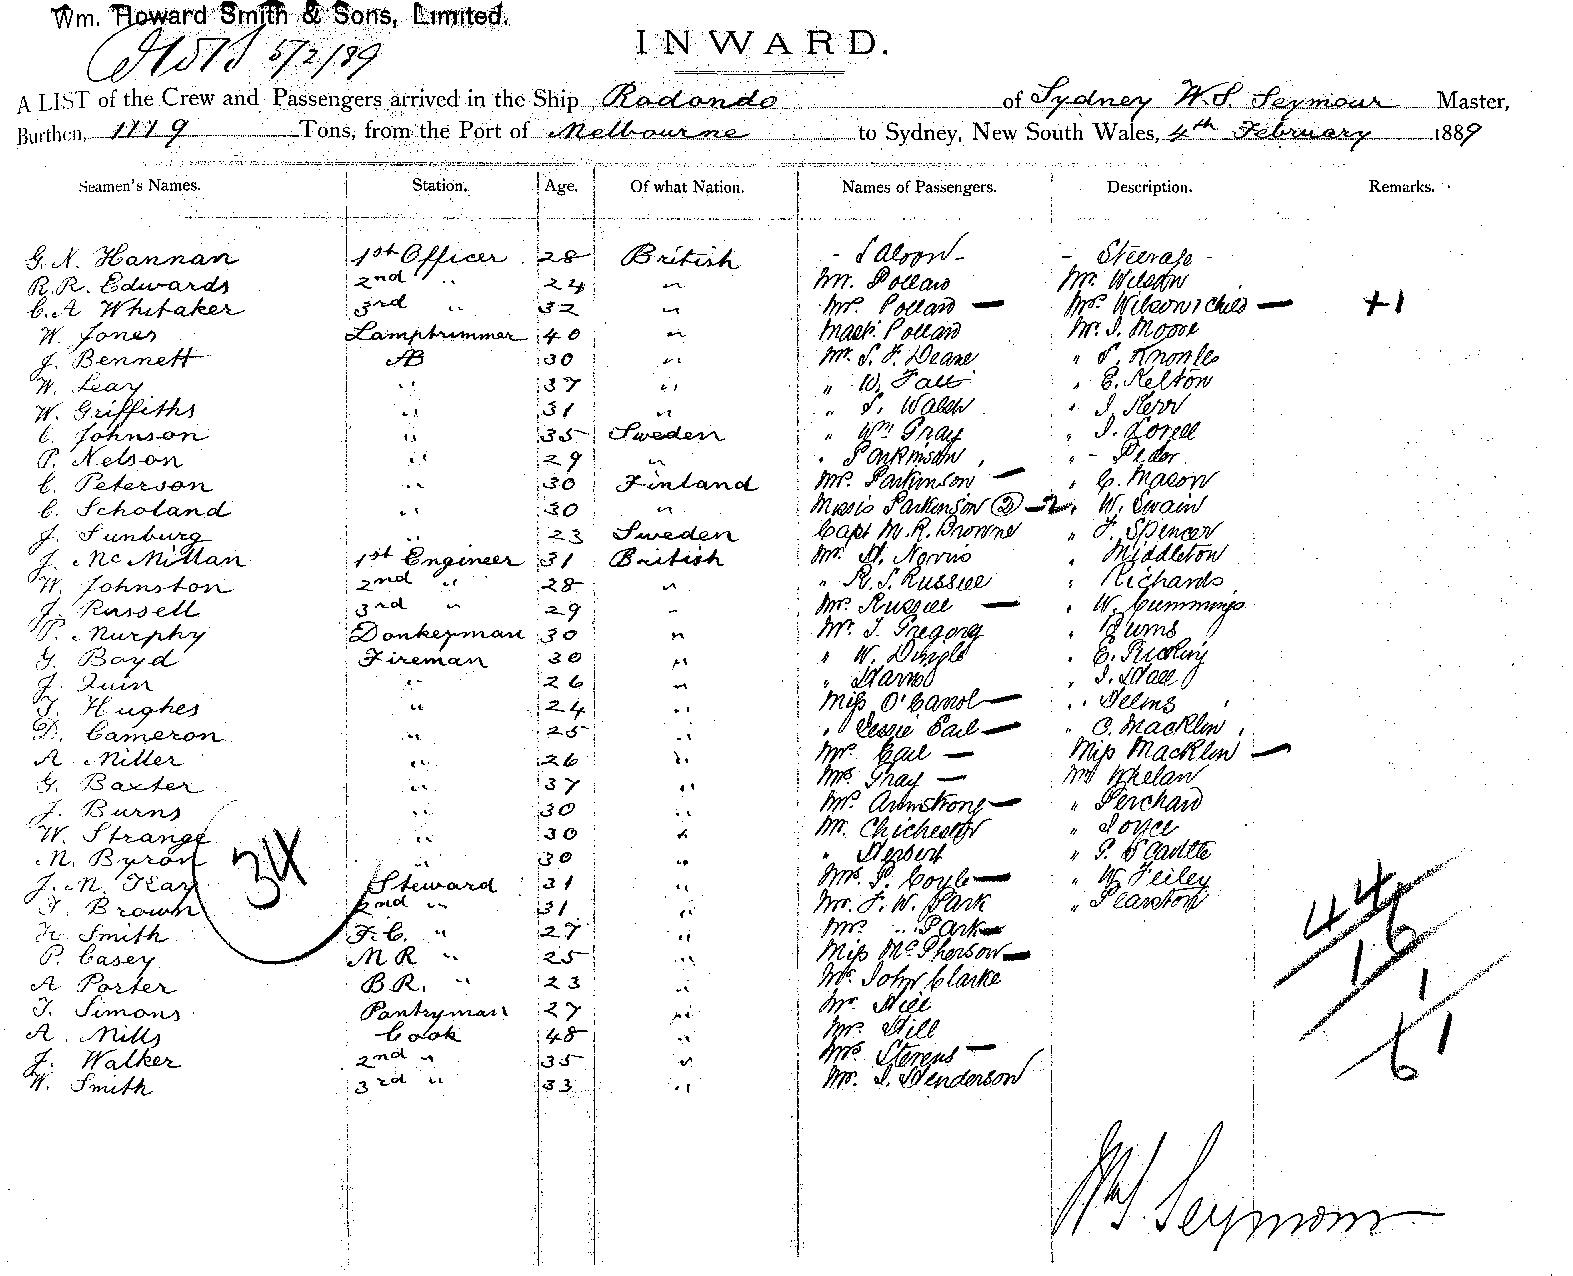 Wm. Howard Smith & Sons, Limited.
5/2/89
INWARD.
A LIST of the Crew and Passengers arrived in the Ship Rodondo of Sydney W.S. Seymour Master,
Burthen, 1119 Tons, from the Port of Melbourne to Sydney, New South Wales, 4th February 1889
Seamen's Names. Station. Age. Of what Nation. Names of Passengers. Description. Remarks.
G. N. Hannan 1st Officer 28 British - Saloon - - Steerage -
R. R. Edwards 2nd " 24 " Mr. Pollard Mr. Wilson
C. A Whitaker 3rd " 32 " Mrs. Pollard — Mrs. Wilson 1 Child — +1
W. Jones Lamptrimmer 40 " Mast. Pollard Mr. J. Moore
J. Bennett AB 30 " Mr. S. F. Deane " S. Knowles
W. Leay " 37 " " W. Tait " E. Kelton
W. Griffiths " 31 " " S. Walsh " J. Kerr
C. Johnson " 35 Sweden " Wm Gray " J. Lovell
P. Nelson " 29 " " Parkinson " -
C. Peterson " 30 Finland Mrs. Parkinson — " C. Mason
C. Scholand " 30 " Misses Parkinson (2) —2 " W. Swain
J. Sunburg " 23 Sweden Capt M. R. Browne " F. Spencer
J. McMillan 1st Engineer 31 British Mr. H. Norris " Middleton
W. Johnston 2nd " 28 " " R. S. Russell " Richards
J. Russell 3rd " 29 " Mrs. Russell — " W. Cummings
P. Murphy Donkeyman 30 " Mr. J. Gregory " Burns
G. Boyd Fireman 30 " " W. Dingle " E.
J. Quin " 26 " " " J. Hall
T. Hughes " 24 " Miss O'Carrol — " Helms
D. Cameron " 25 " " Jessie Earl — " C. Macklin
A. Miller " 26 " Mrs. Earl — Miss Macklin —
G. Baxter " 37 " Mrs. Gray — Mr Whelan
J. Burns " 30 " Mrs. Armstrong — " Perchard
W. Strange " 30 " Mr. Chichester " Joyce
M. Byron " 30 " " Herbert " P.
J. M. Kay Steward 31 " Mrs. P. Coyle — " W. Feiley
T. Brown 2nd " 31 " Mr. F. W. Park " Pearston
H. Smith F.C. " 27 " Mrs " Park —
P. Casey M R " 25 " Miss McPherson —
A Porter B.R. " 23 " Mr. John Clarke
T. Simons Pantryman 27 " Mr. Hill
A. Mills Cook 48 " Mr. Hill
J. Walker 2nd " 35 " Mrs Stevens —
W. Smith 3rd " 33 " Mr. J. Henderson
34
44
16
1
61
Wm S. Seymour